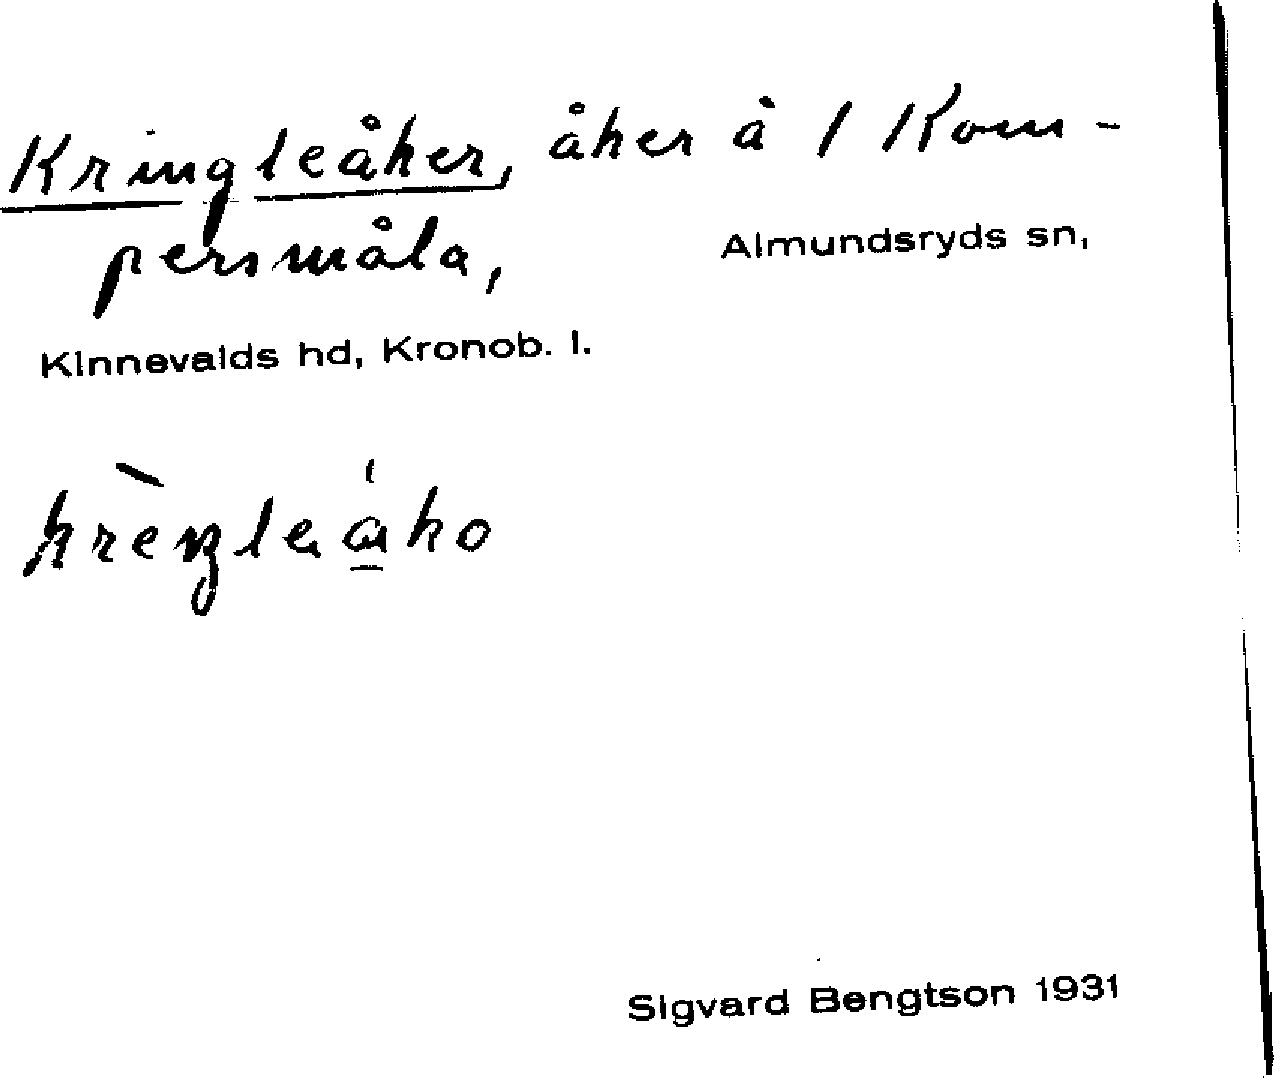 Kringleåker, åker å 1 Kom-
persmåla,
Almundsryds sn,
Kinnevalds hd, Kronob. l.
Sigvard Bengtson 1931